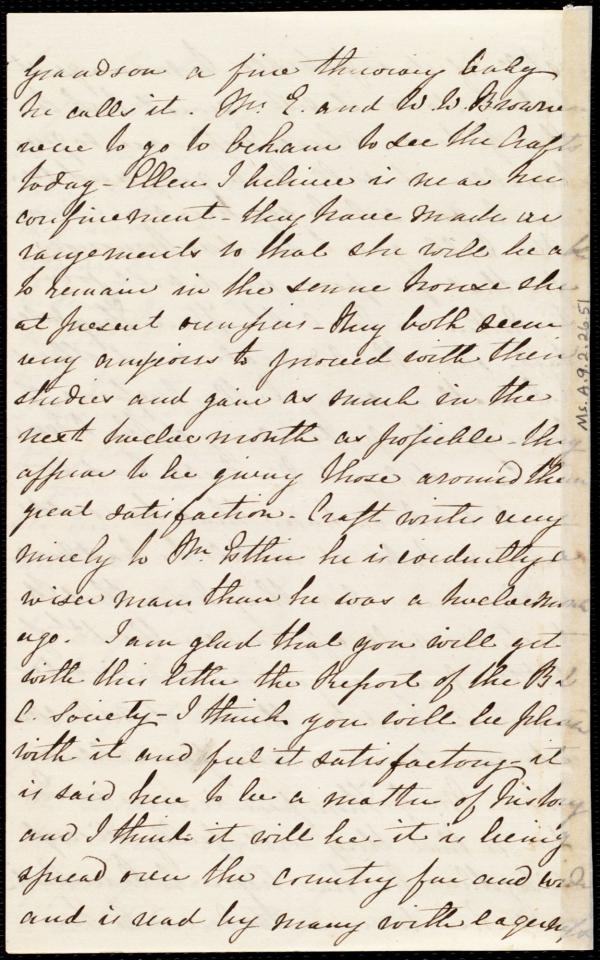 Grandson a fine thriving baby
he calls it. Mr. E. and W. W. Browne
were to go to Ockham to see the Crafts
today - Ellen I believe is near her
confinement - they have made ar
rangements so that she will be able
to remain in the same house she
at present occupies - They both seem
very anxious to proceed with their
studies and gain as much in the
next twelve month as possible - they
appear to be giving those around them
great satisfaction - Craft writes very
nicely to Mr. Estlin he is evidently a
wiser man than he was a twelvemonth
ago. I am glad that you will get
with this letter the Report of the B &
C. Society - I think you will be pleased
with it and feel it satisfactory - it
is said here to be a matter of history
and I think it will be - it is being
spread over the country far and wide
and is read by many with eagern
Ms. A.9.2.26.51